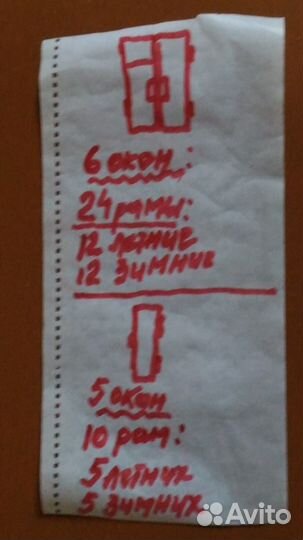 6 окон:
24 рамы:
12 летние
12 зимние
5 окон
10 рам:
5 летних
5 зимних
Avito